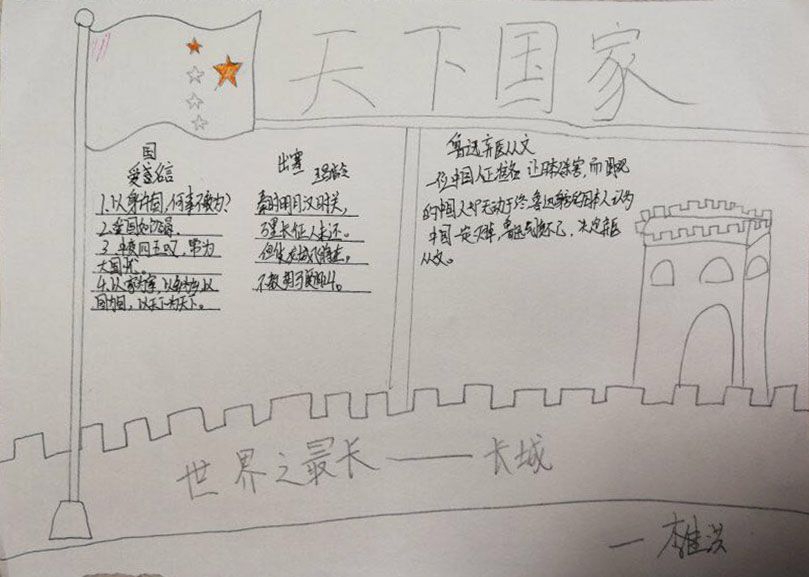 天下国家
国
出塞
王昌龄
1.以身许国,何事不敢为?
2.爱国如饥渴。
3.中夜四五叹,常为
大国忧。
4.以家为家,以乡为乡,以
国为国,以天下为天下。
秦时明月汉时关,
万里长征人未还。
但使龙城飞将在,
不教胡马度阴山。
鲁迅弃医从文
一位中国人正准备 让日本杀害,而围观
的中国人却无动于终.鲁迅 日本人认为
中国一定灭掉,鲁迅 不已,决定弃医
从文。
世界之最长——长城